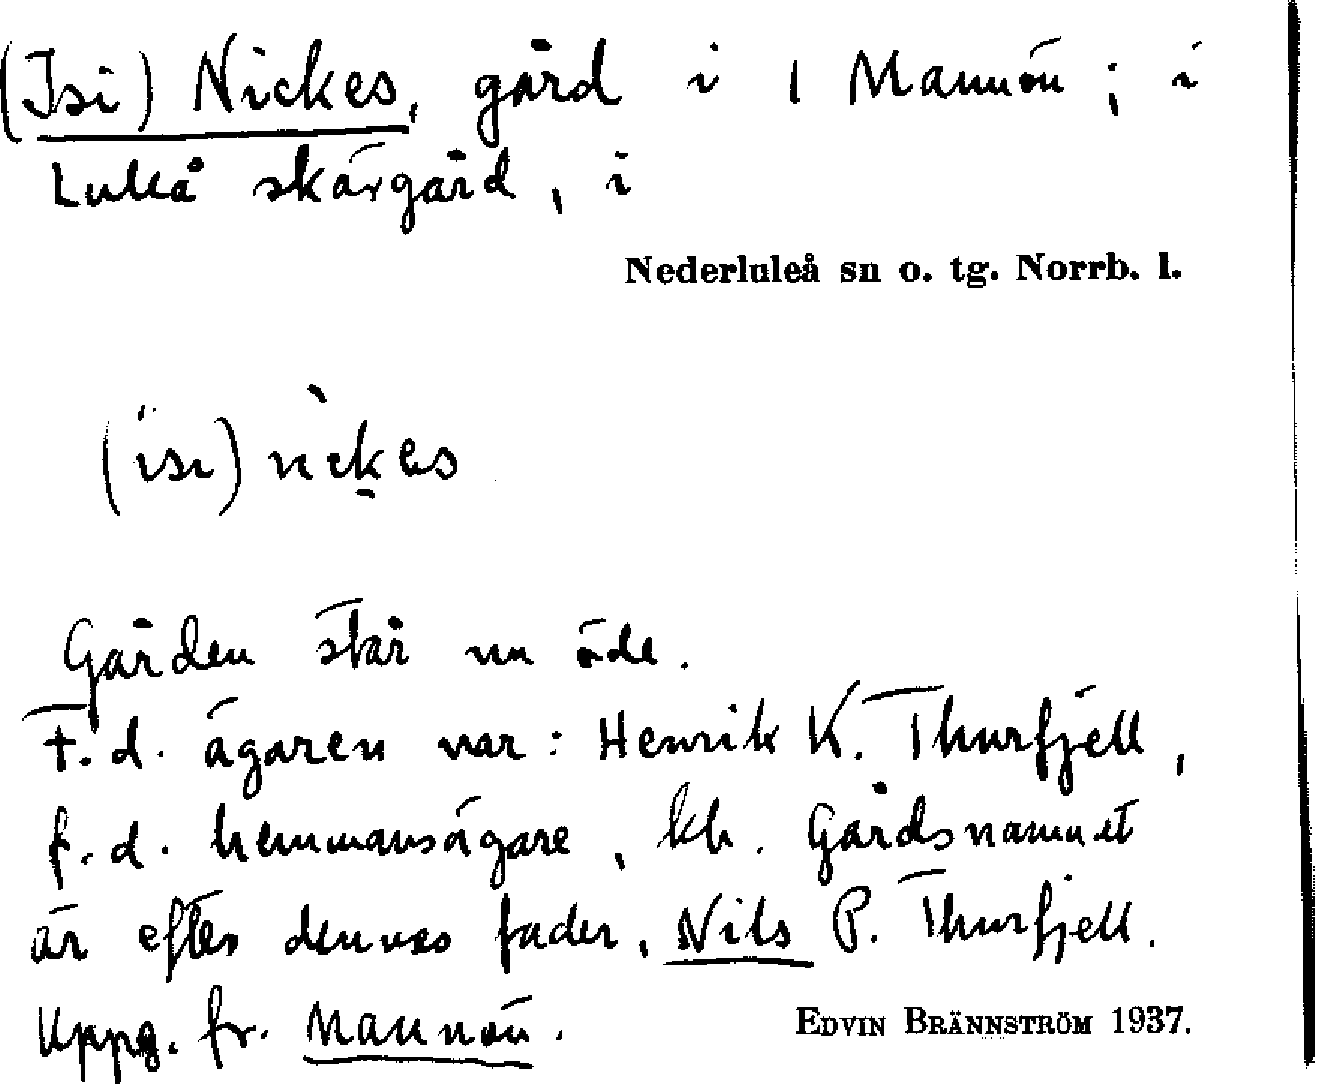 (Isi) Nickes, gård i 1 Mannön ; i
Luleå skärgård , i
Nederluleå sn o. tg. Norrb. l.
(isi) nikes
Gården står nu öde.
F.d. ägaren var : Henrik K. Thurfjell ,
f.d. hemmansägare , kb. Gårdsnamnet
är efter dennes fader, Nils P. Thurfjell.
Uppg. fr. Mannön.
EDVIN BRÄNNSTRÖM 1937.